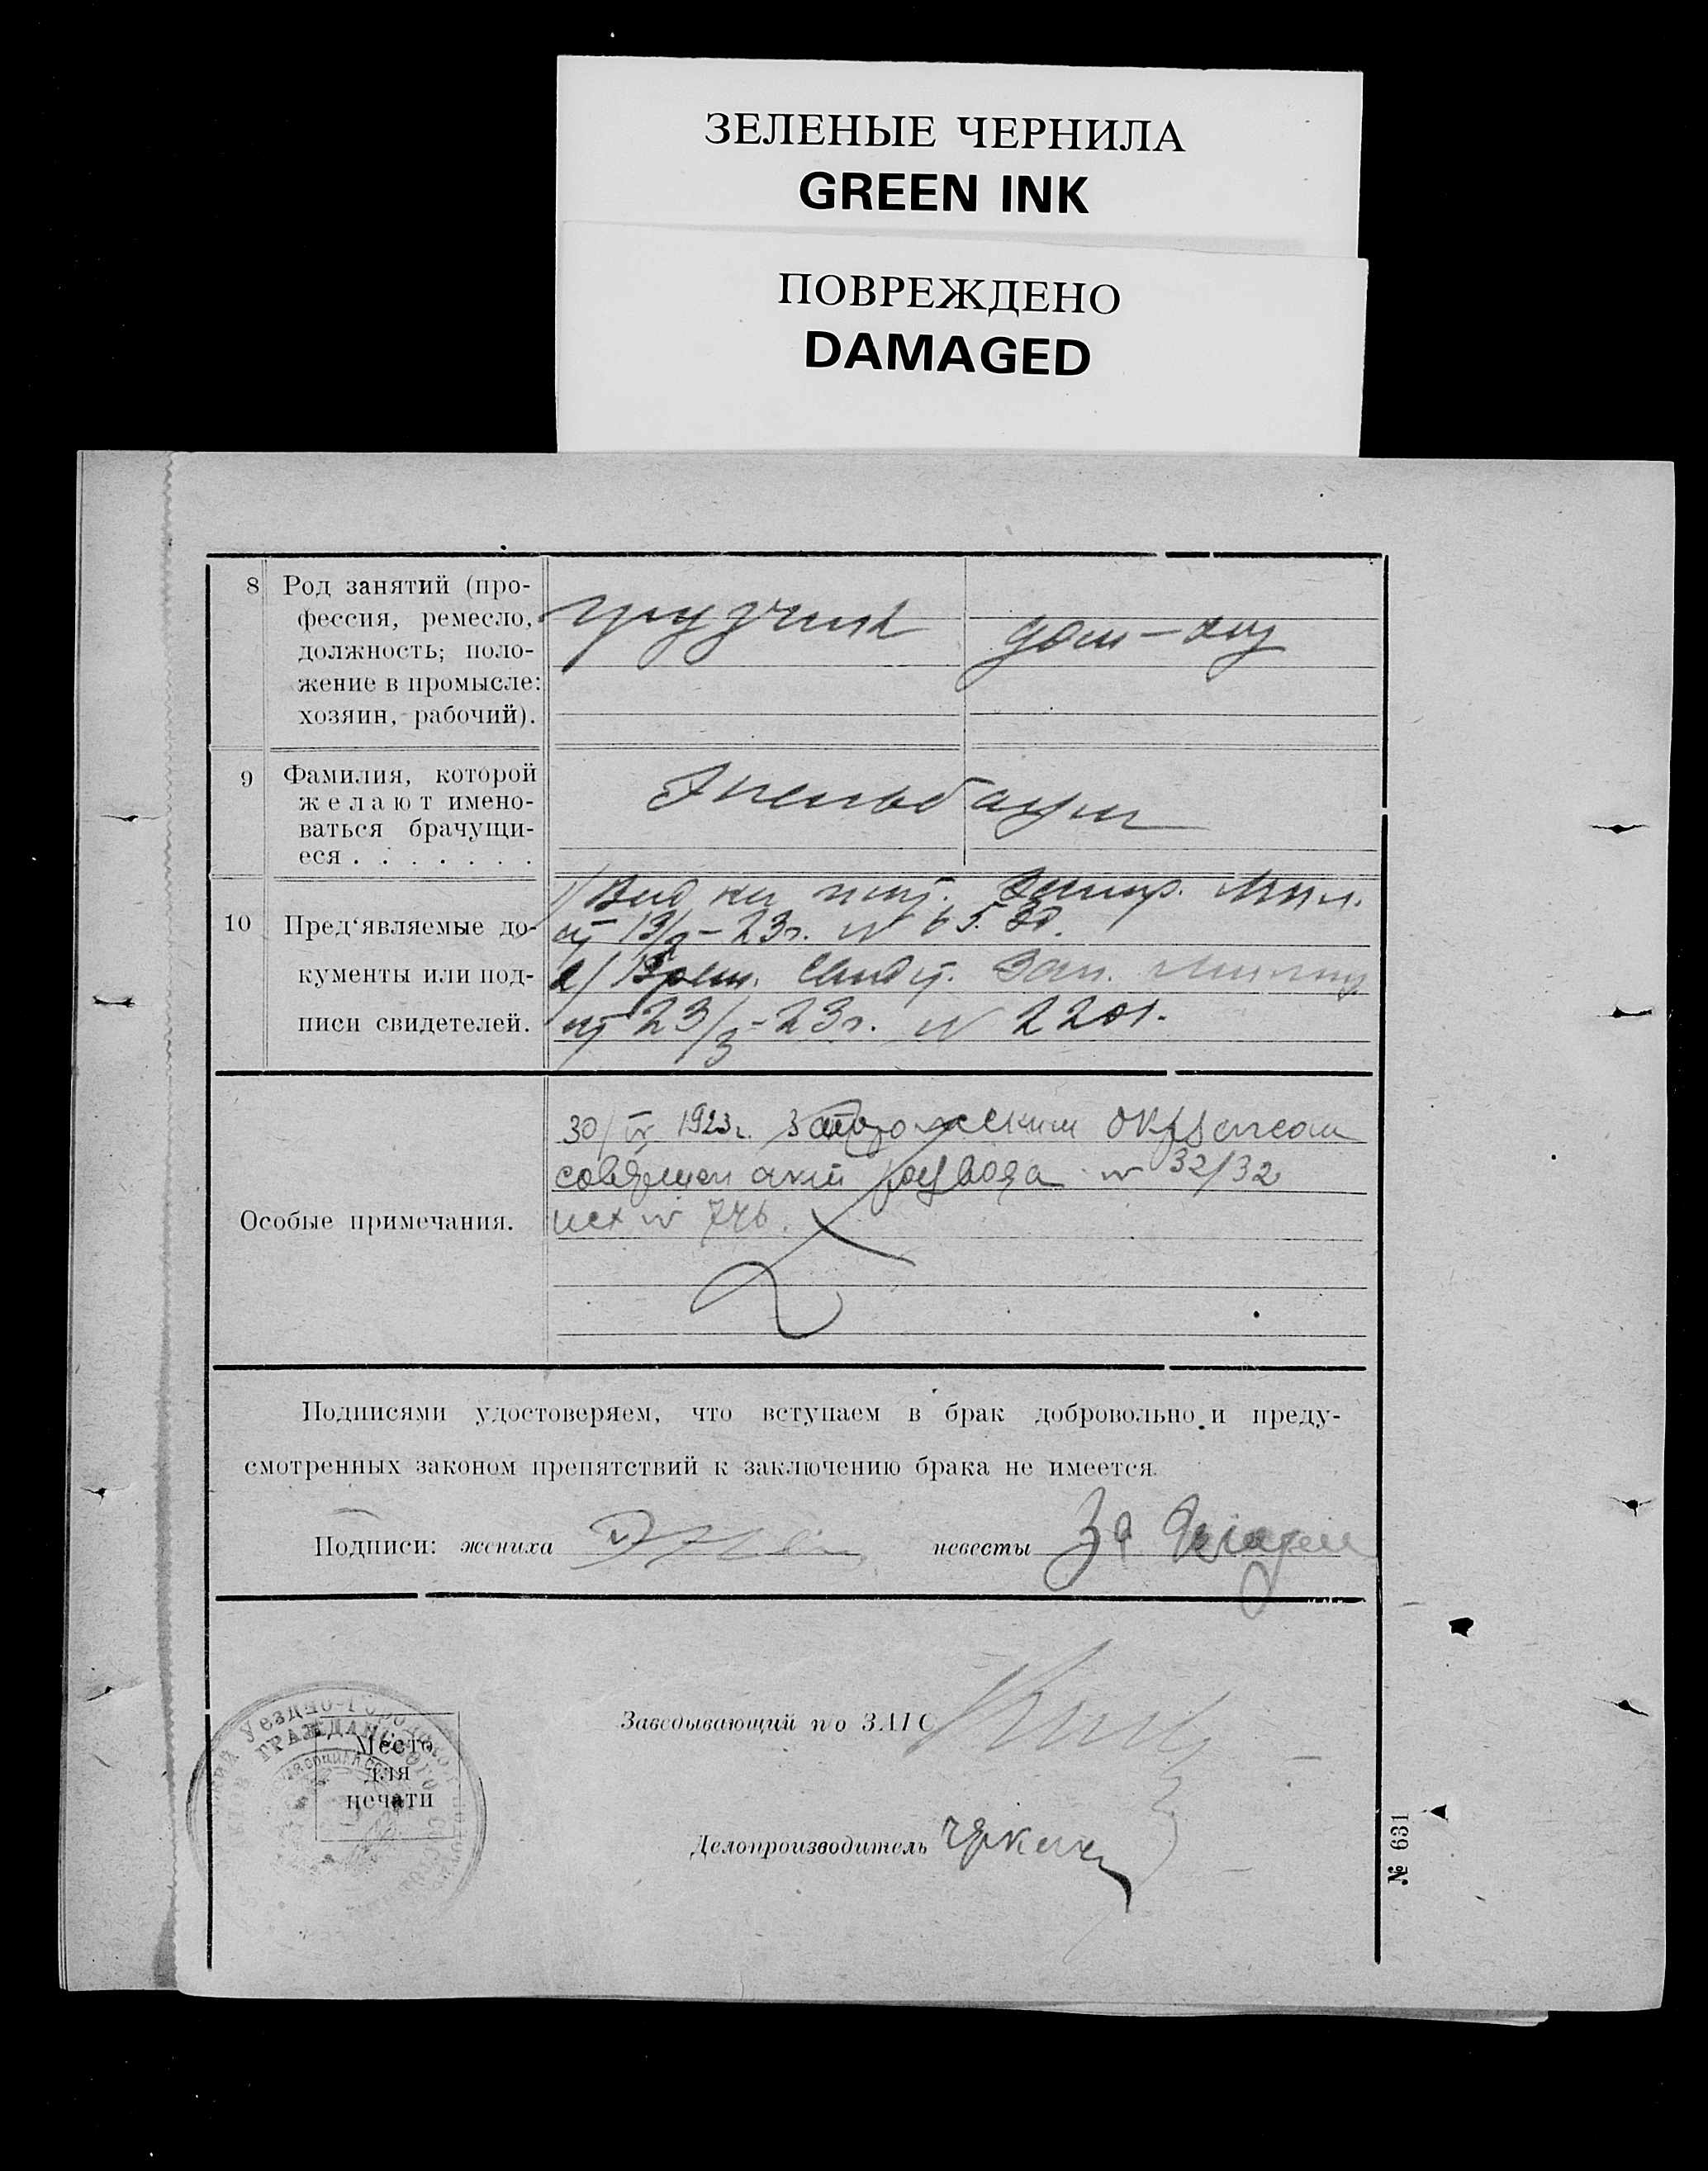 ЗЕЛЕНЫЕ ЧЕРНИЛА
GREEN INK
ПОВРЕЖДЕНО
DAMAGED
8 Род занятий (про-
фессия, ремесло,
должность; поло-
жение в промысле:
хозяин, рабочий).
грузчик дом-хоз
9 Фамилия, которой
желают имено-
ваться брачущи-
еся . . . . . . .
10 Пред‘являемые до-
кументы или под-
писи свидетелей.
1/ Вид на жит.
от 13/2-23г. №
2/ Врем. Свид. Зап.
от 23/3-23г. № 2201.
Особые примечания.
30/IV 1923г. Запорожским
совершен акт развода № 32/32
исх № 746.
Подписями удостоверяем, что вступаем в брак добровольно и преду-
смотренных законом препятствий к заключению брака не имеется.
Подписи: жениха невесты За
Заведывающий по ЗАГС
Место
для
печати
Делопроизводитель
№ 631